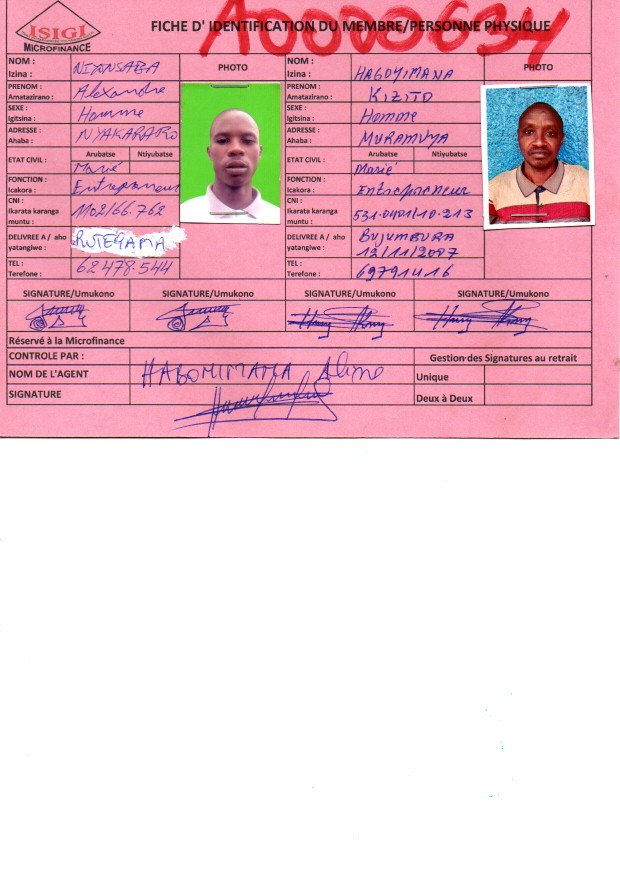 ISIGI
MICROFINANCE
FICHE D' IDENTIFICATION DU MEMBRE/PERSONNE PHYSIQUE
A0000634
NOM :
Izina :
PHOTO
NOM :
Izina :
HAGOYIMANA
PHOTO
PRENOM :
Amatazirano :
Alexandre
PRENOM :
Amatazirano :
KIZITO
SEXE :
Igitsina :
Homme
SEXE :
Igitsina :
Homme
ADRESSE :
Ahaba :
NYAKARARO
ADRESSE :
Ahaba :
MURAMVYA
ETAT CIVIL :
Arubatse Ntiyubatse
Marié
ETAT CIVIL :
Arubatse Ntiyubatse
Marié
FONCTION :
Icakora :
Entrepreneur
FONCTION :
Icakora :
Entrepreneur
CNI :
Ikarata karanga
muntu :
1102/66.762
CNI :
Ikarata karanga
muntu :
531.0401/10-213
DELIVREE A / aho
yatangiwe :
RUTEGAMA
DELIVREE A / aho
yatangiwe :
BUJUMBURA
12/11/2007
TEL :
Terefone :
62 478.544
TEL :
Terefone :
69791416
SIGNATURE/Umukono SIGNATURE/Umukono SIGNATURE/Umukono SIGNATURE/Umukono
Réservé à la Microfinance
CONTROLE PAR :
Gestion des Signatures au retrait
NOM DE L'AGENT
Unique
SIGNATURE
Deux à Deux